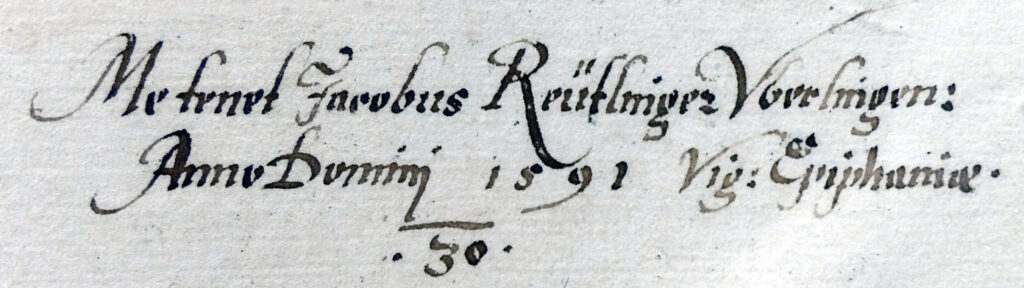 Me tenet Jacobus Reütlinger Vberlingen:
Anno Dominij 1591 Vig: Epiphaniæ.
.30.